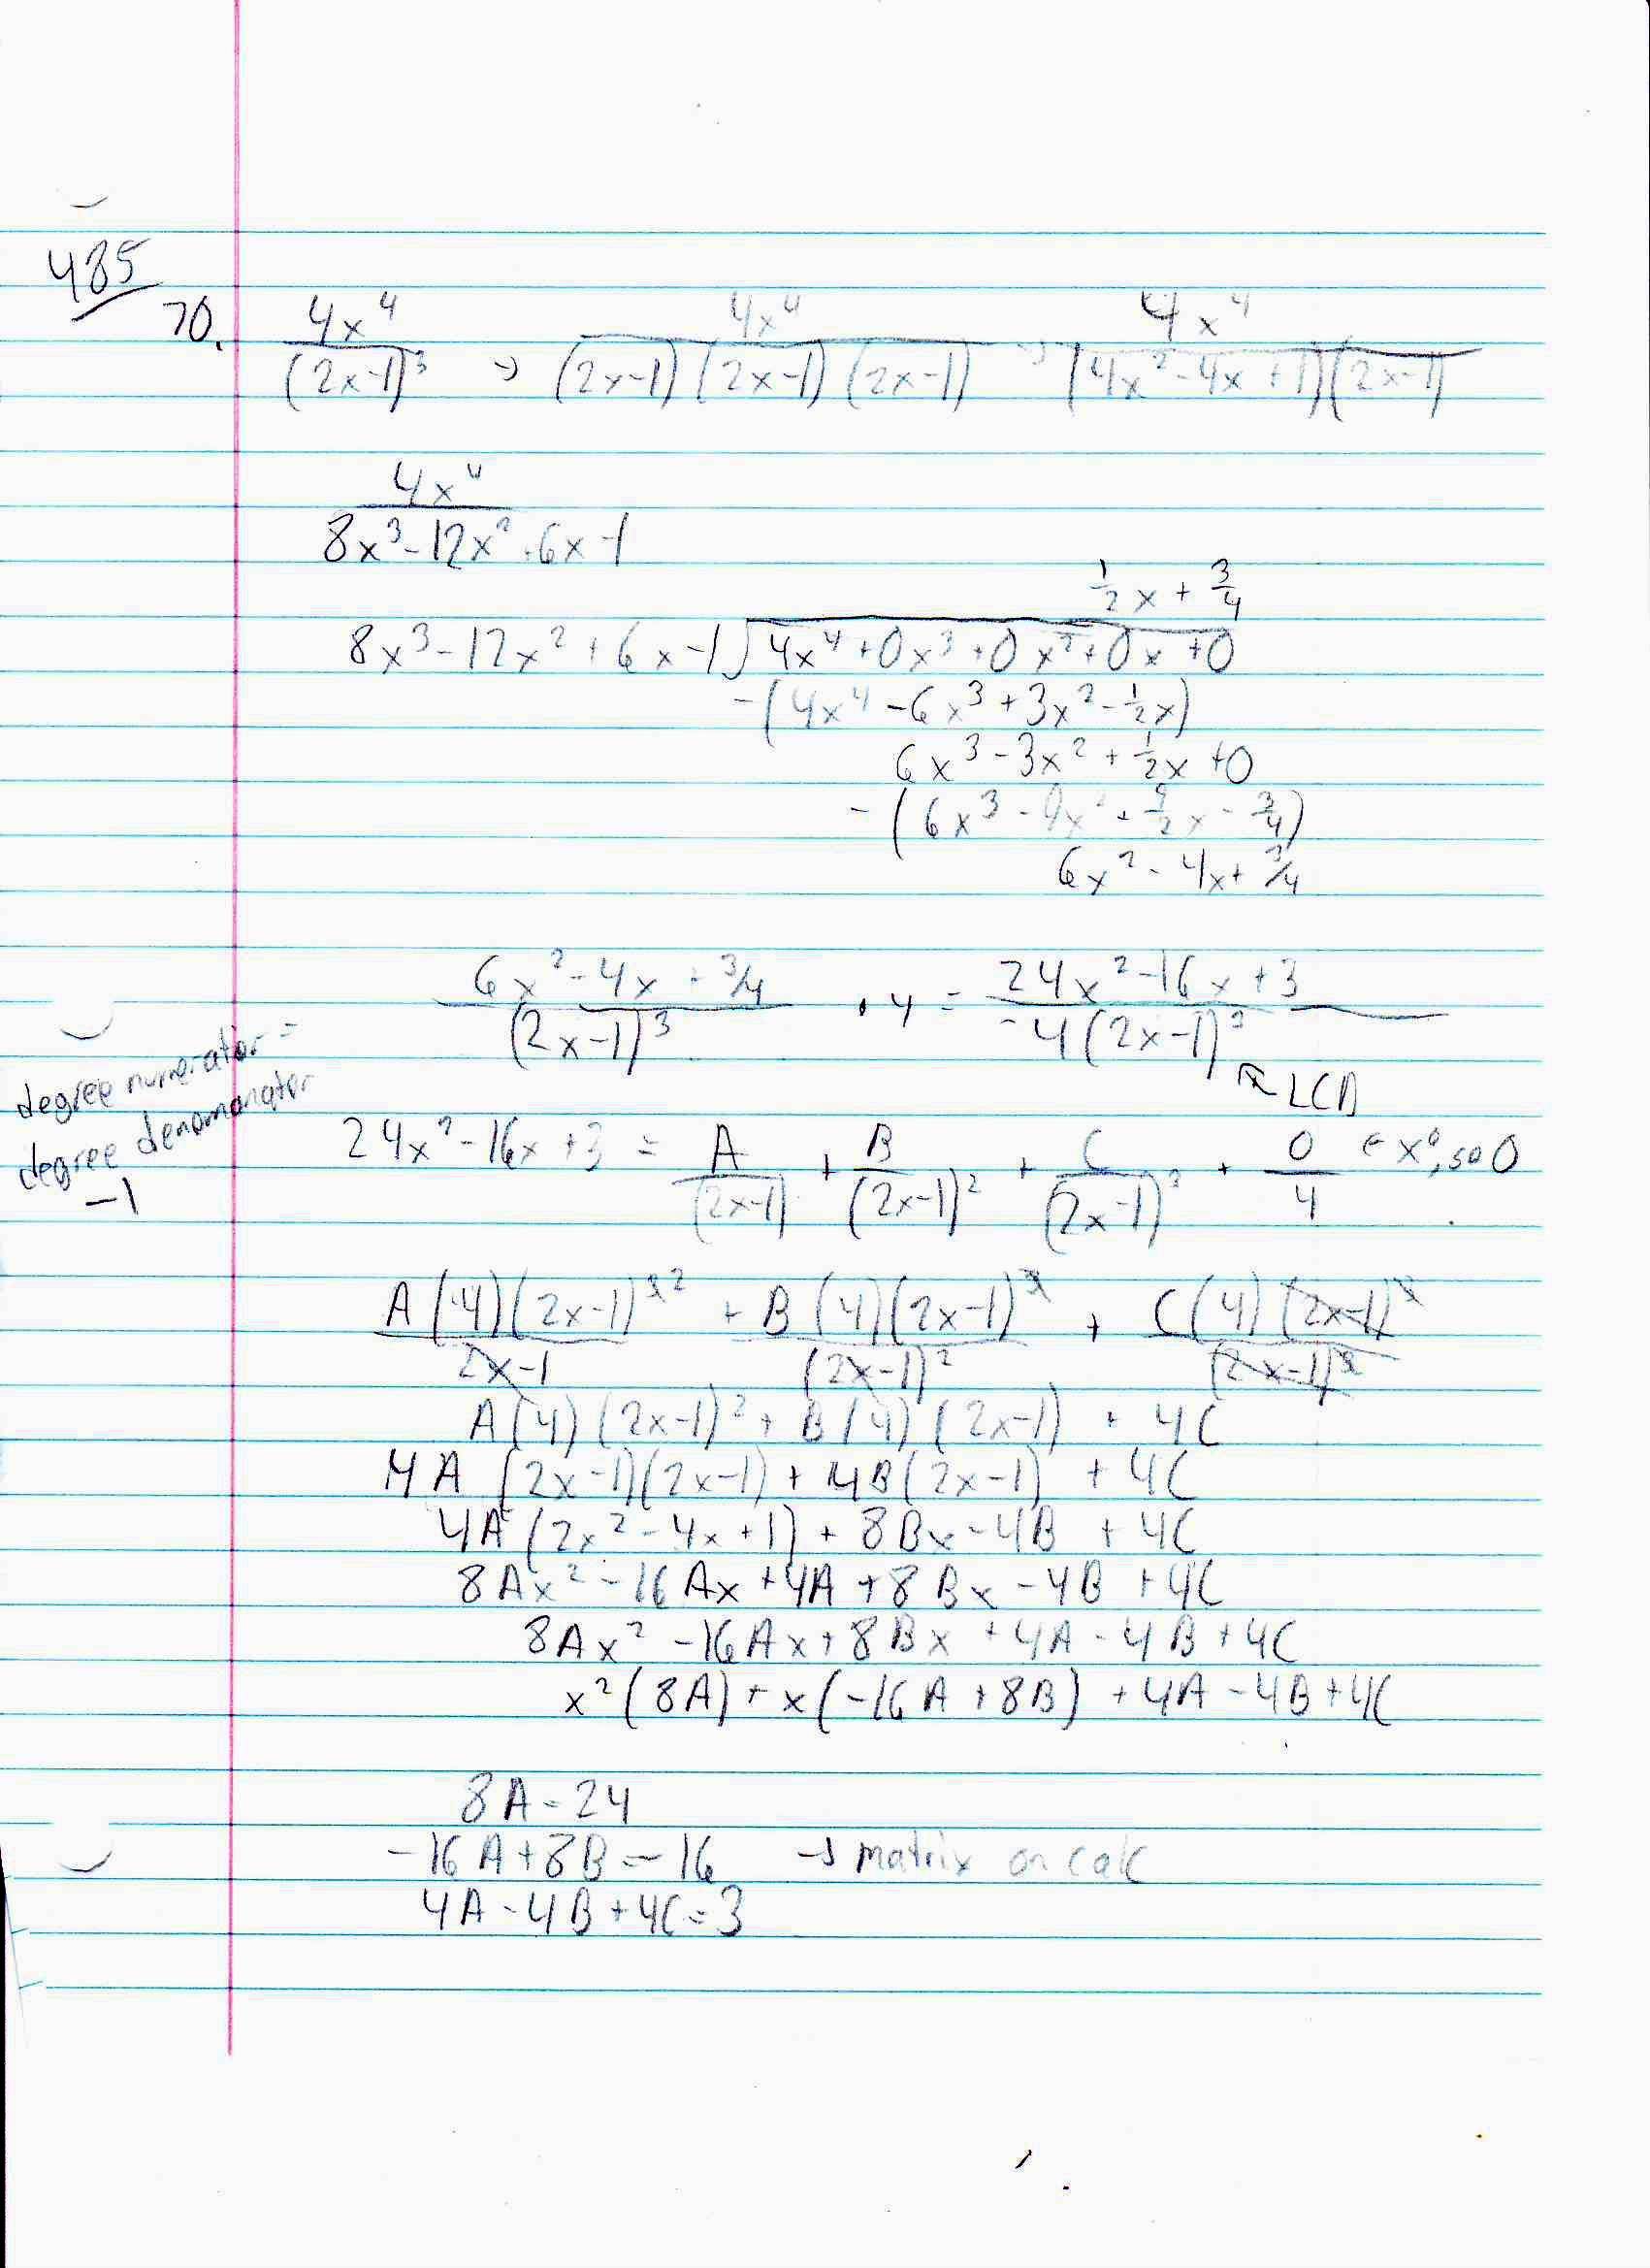 485
70. 4x^4/(2x-1)^3 → 4x^4/((2x-1)(2x-1)(2x-1)) → 4x^4/((4x^2-4x+1)(2x-1))
4x^4/(8x^3-12x^2+6x-1)
1/2x + 3/4
8x^3-12x^2+6x-1 ) 4x^4+0x^3+0x^2+0x+0
-(4x^4-6x^3+3x^2-1/2x)
6x^3-3x^2+1/2x+0
-(6x^3-9x^2+9/2x-3/4)
6x^2-4x+3/4
(6x^2-4x+3/4)/(2x-1)^3 · 4 = (24x^2-16x+3)/(4(2x-1)^3)
↖ LCD
degree numerator =
degree denomonator
-1
24x^2-16x+3 = A/(2x-1) + B/(2x-1)^2 + C/(2x-1)^3 + 0/4 ← x^0, so 0
A(4)(2x-1)^2/(2x-1) + B(4)(2x-1)^3/(2x-1)^2 + C(4)(2x-1)^3/(2x-1)^3
A(4)(2x-1)^2 + B(4)(2x-1) + 4C
4A(2x-1)(2x-1) + 4B(2x-1) + 4C
4A(2x^2-4x+1) + 8Bx-4B + 4C
8Ax^2-16Ax+4A+8Bx-4B+4C
8Ax^2-16Ax+8Bx+4A-4B+4C
x^2(8A)+x(-16A+8B)+4A-4B+4C
8A=24
-16A+8B=-16 → matrix on calc
4A-4B+4C=3